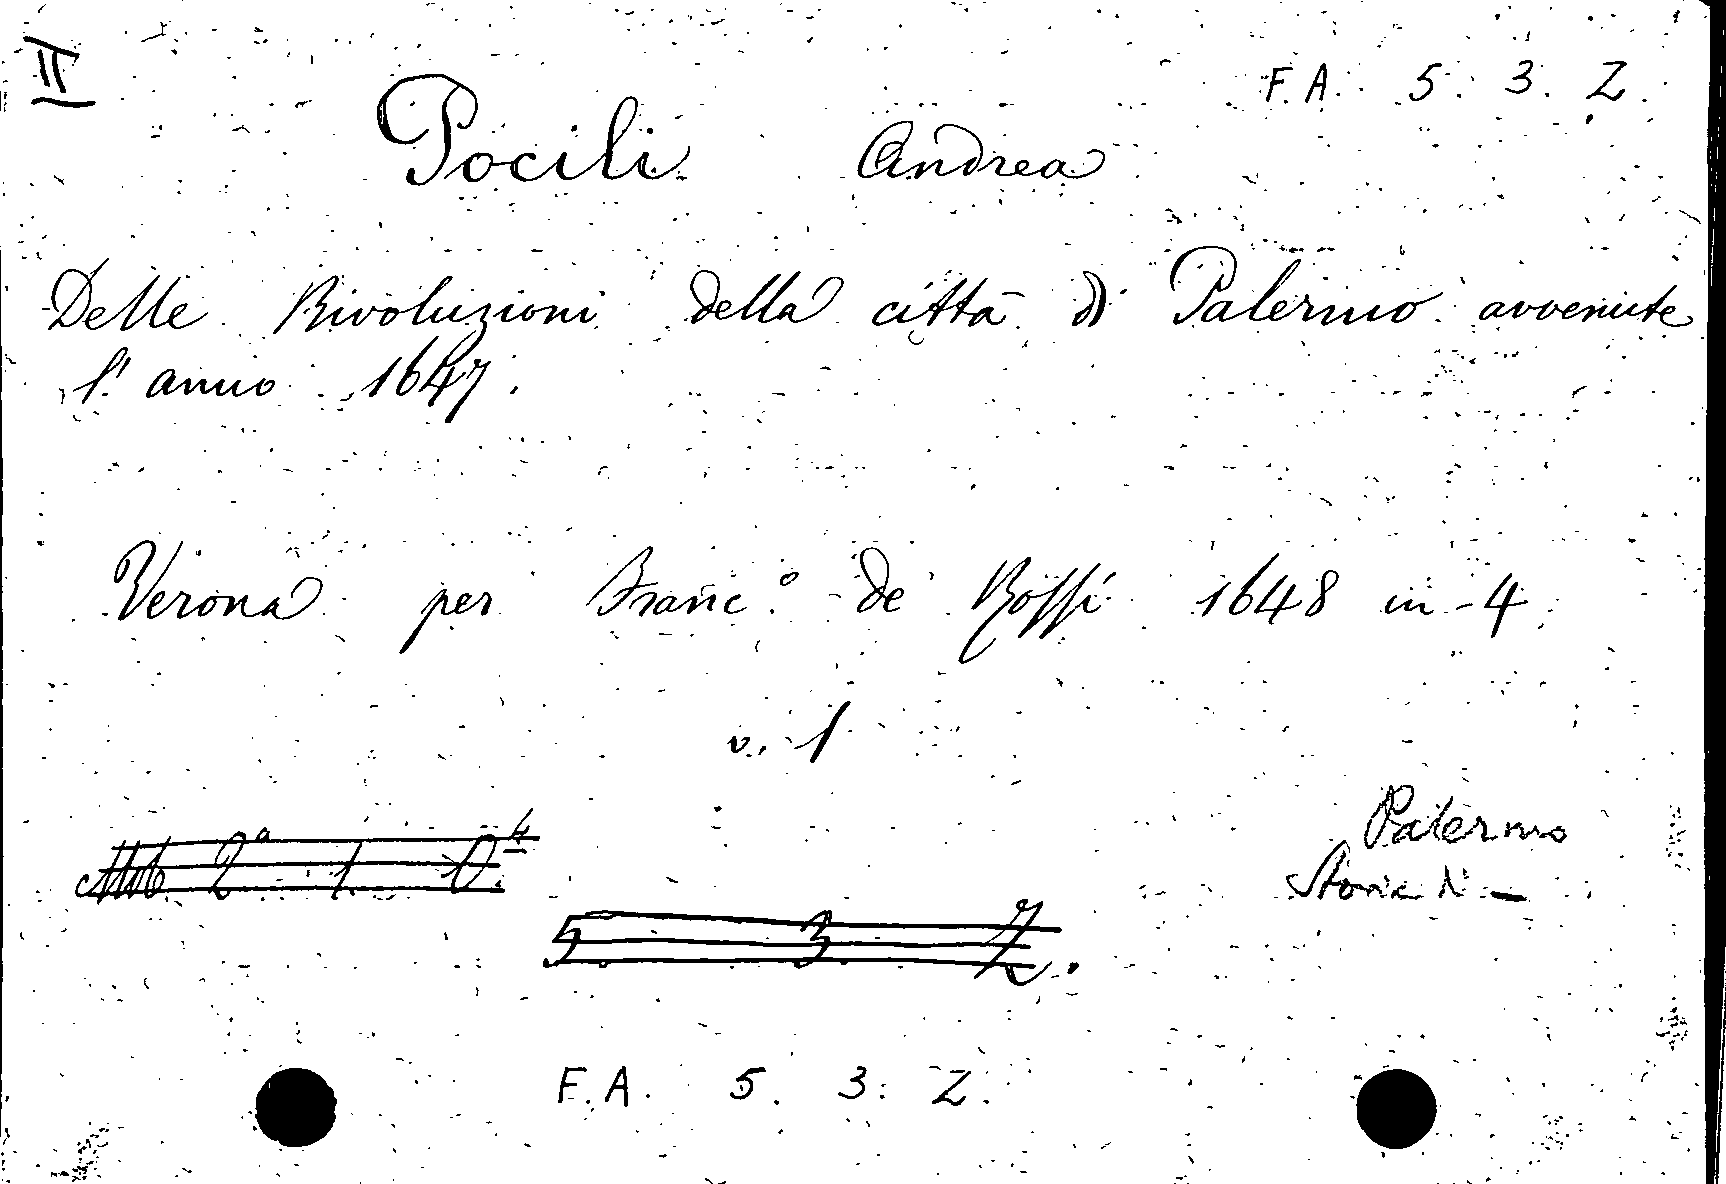 II
F. A. 5. 3. Z.
Pocili Andrea
Delle Rivoluzioni della città di Palermo avvenute
l'anno 1647.
Verona per Franc.º de Rossi 1648 in-4
v. 1
Palermo
Storia
2ª 1. D. 4
5 3 Z.
F. A. 5. 3. Z.